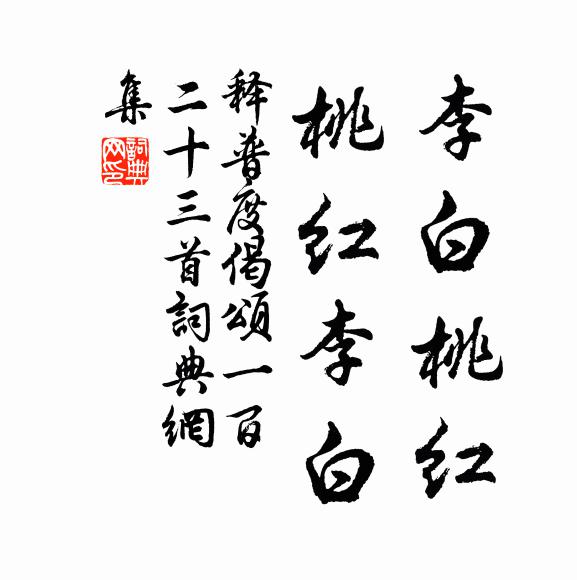 李白桃红
桃红李白
释普度偈颂一百
二十三首詞典網
集
詞典網印